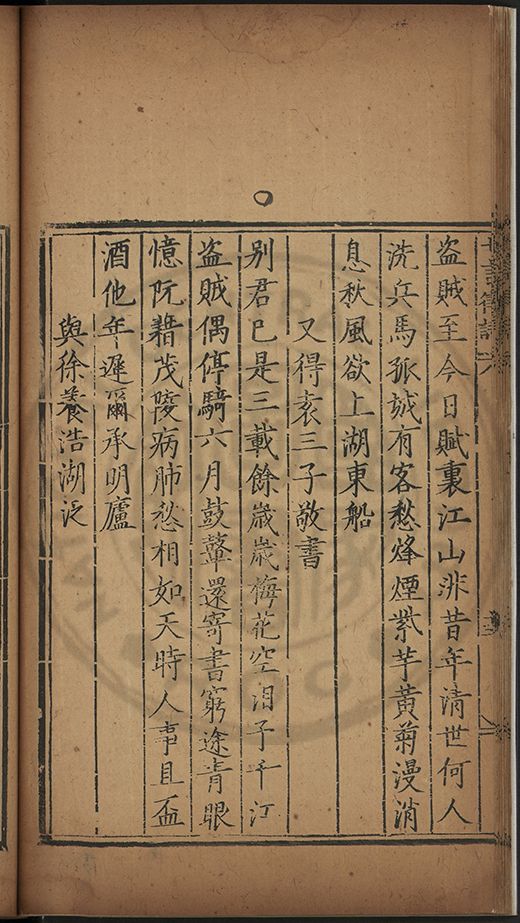 盗賊至今日賦裏江山非昔年清世何人
洗兵馬孤城有客愁烽煙紫芋黃菊漫消
息秋風欲上湖東船
又得袁三子敬書
别君已是三載餘歲歲梅花空泪予千江
盗賊偶停騎六月鼓鼙還寄書窮途青眼
憶阮籍茂陵病肺愁相如天時人事且盃
酒他年遲爾承明廬
與徐養浩湖泛